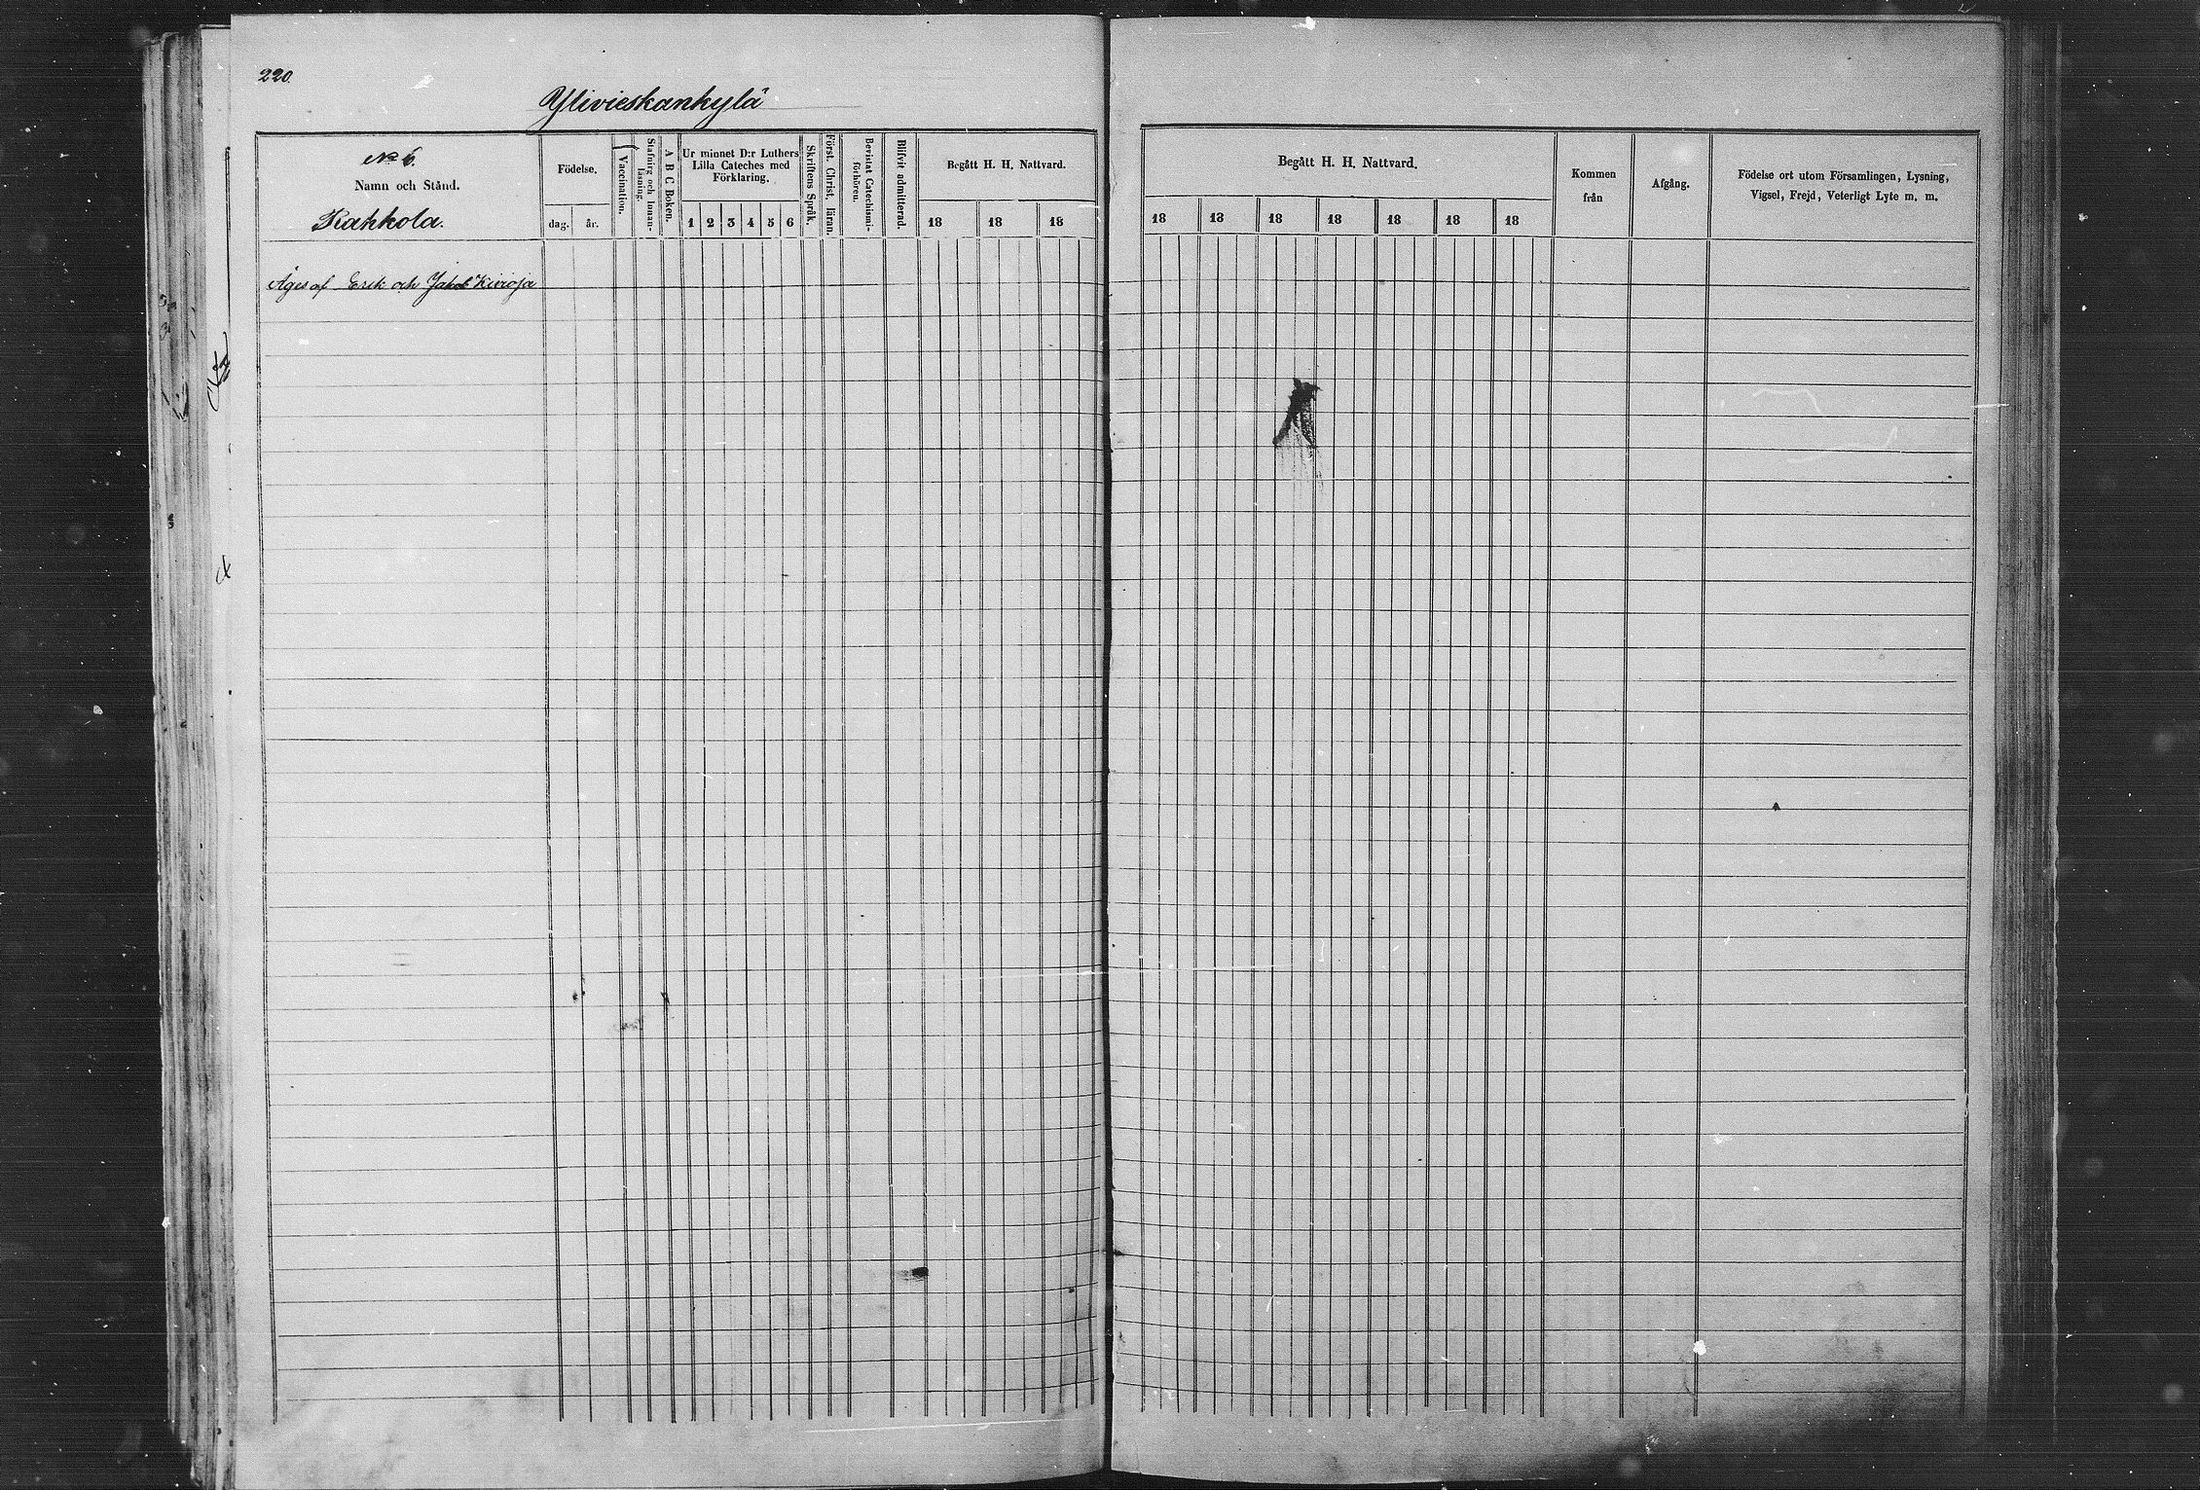 220.
Ylivieskankylä
No 6.
Namn och Stånd.
Kahkola.
Födelse.
dag.
år.
Vaccination.
Stafning och Innan-
läsning.
A B C Boken.
Ur minnet D:r Luthers
Lilla Cateches med
Förklaring.
1 2 3 4 5 6
Skriftens Språk.
Först. Christ. läran.
Bevistat Catechismi-
förhören.
Blifvit admitterad.
Begått H. H. Nattvard.
18 18 18
Begått H. H. Nattvard.
18 18 18 18 18 18 18
Kommen
från
Afgång.
Födelse ort utom Församlingen, Lysning,
Vigsel, Frejd, Veterligt Lyte m. m.
Äges af Erik och Jakob Kivioja